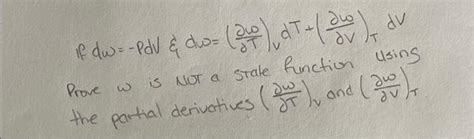 If dw=-PdV & dw=(∂w/∂T)_V dT+(∂w/∂V)_T dV
Prove w is NOT a state function using
the partial derivatives (∂w/∂T)_V and (∂w/∂V)_T